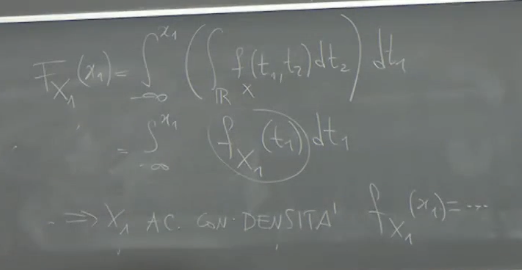 F_{X_1}(x_1) = ∫_{-∞}^{x_1} ( ∫_ℝ f_X(t_1, t_2) dt_2 ) dt_1
= ∫_{-∞}^{x_1} f_{X_1}(t_1) dt_1
⇒ X_1 AC. CON DENSITA' f_{X_1}(x_1) = ...